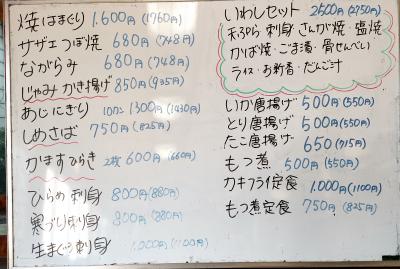 焼はまぐり 1.600円(1760円)
サザエつぼ焼 680円(748円)
ながらみ 680円(748円)
じゃみかき揚げ 850円(935円)
あじにぎり 10カン 1300円(1430円)
しめさば 750円(825円)
かますひらき 2枚 600円(660円)
ひらめ刺身 800円(880円)
寒ブリ刺身 800円(880円)
生まぐろ刺身 1.000円(1100円)
いわしセット 2500円(2750円)
天ぷら 刺身 さんが焼 塩焼
かば焼・ごま漬・骨せんべい
ライス・お新香・だんご汁
いか唐揚げ 500円(550円)
とり唐揚げ 500円(550円)
たこ唐揚げ 650(715円)
もつ煮 500円(550円)
カキフライ定食 1.000円(1100円)
もつ煮定食 750円(825円)